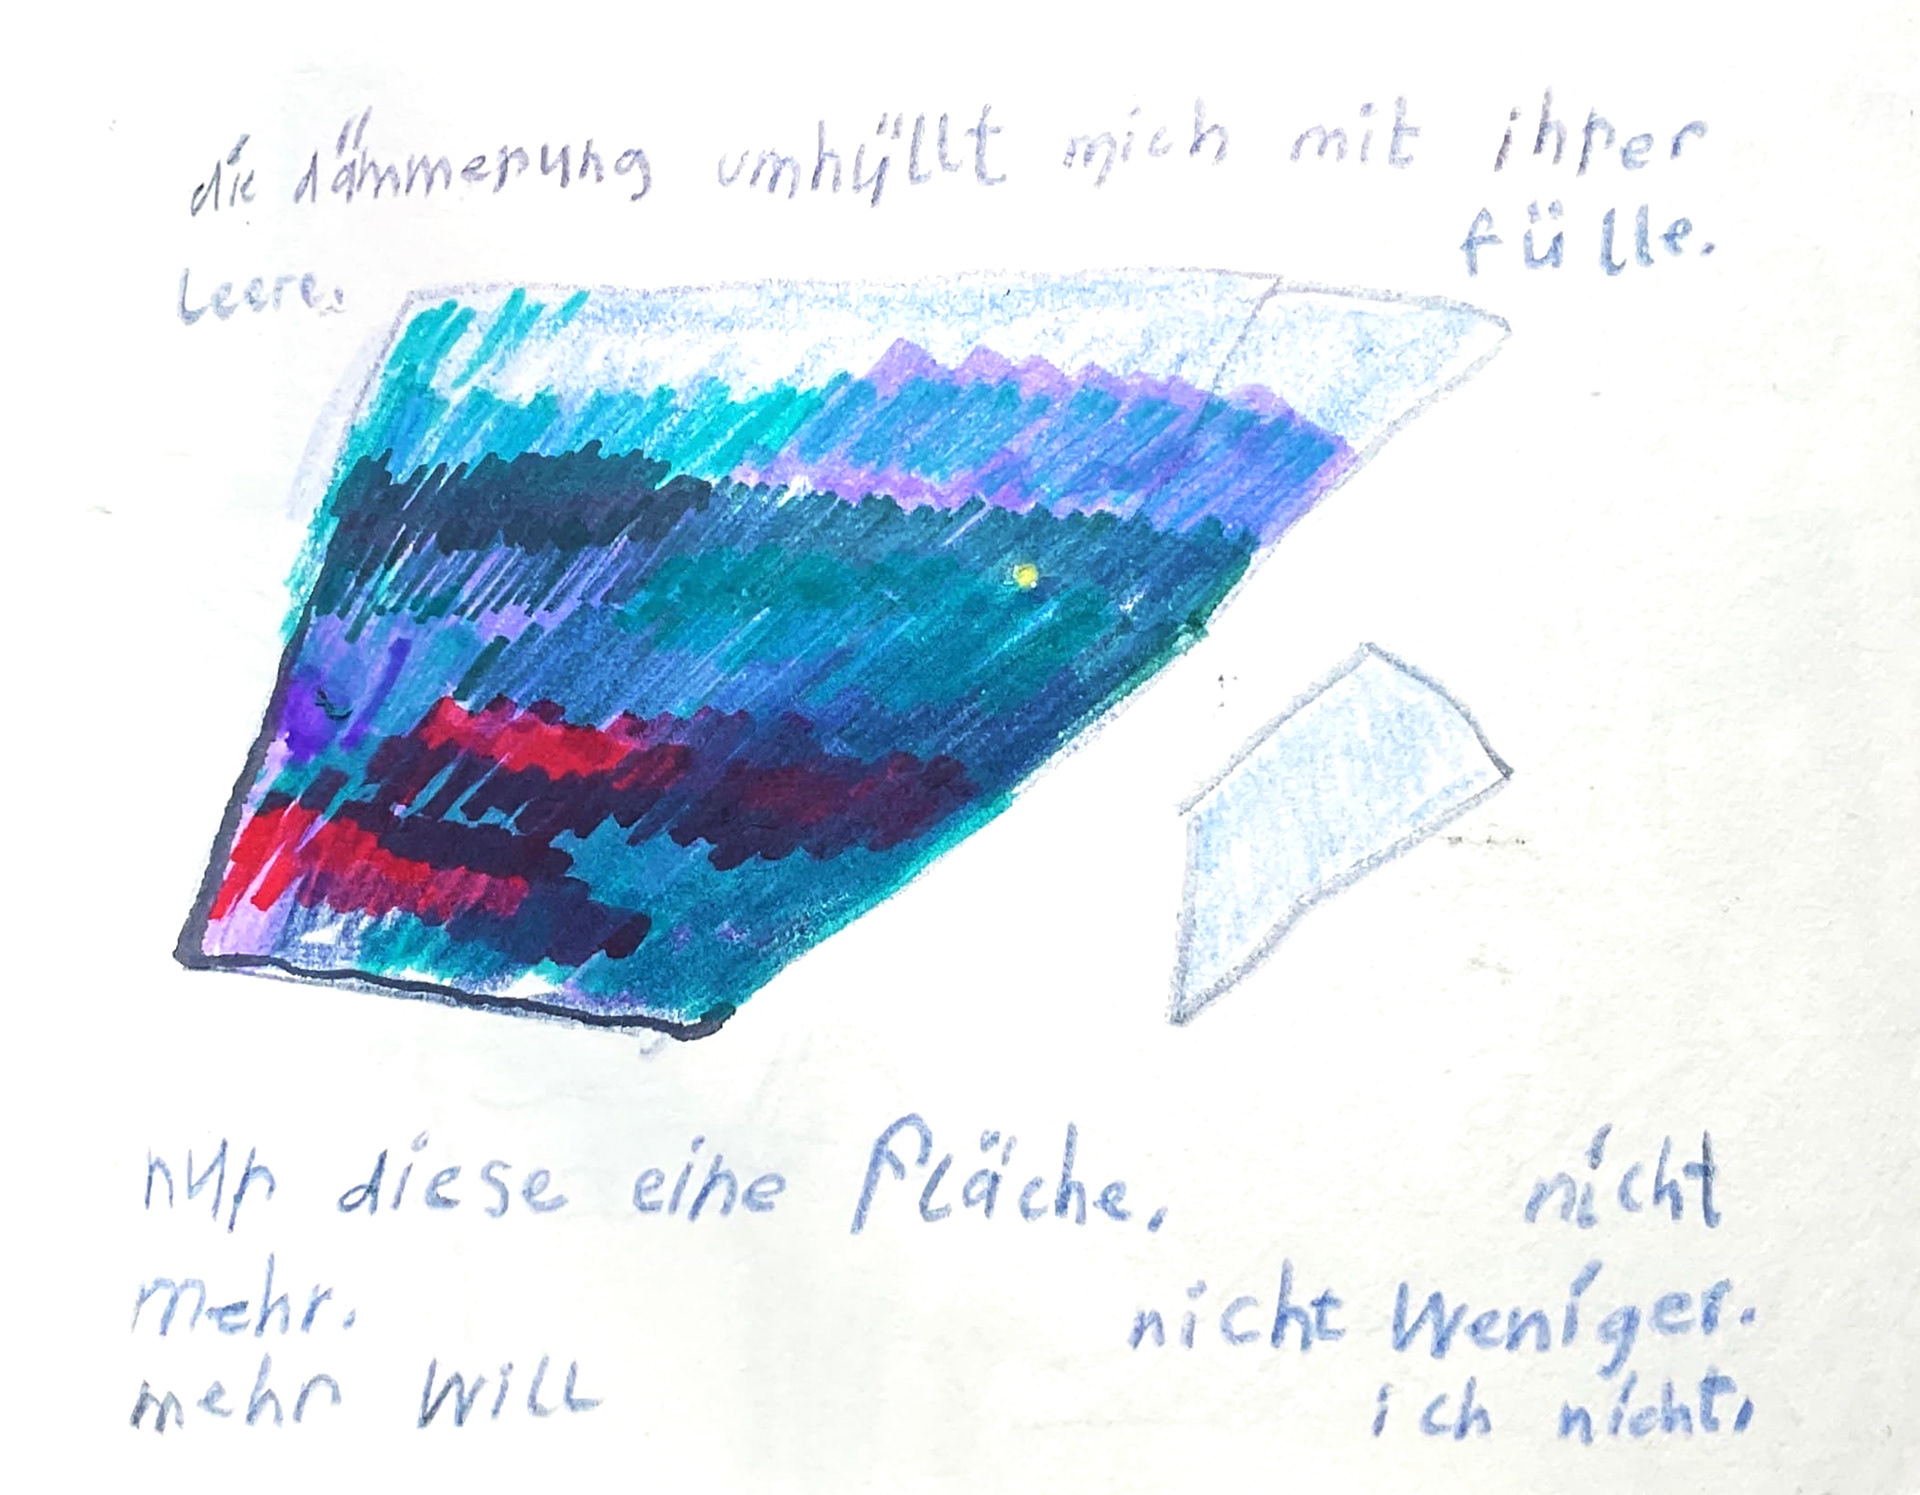 die dämmerung umhüllt mich mit ihrer
fülle.
leere.
nur diese eine fläche. nicht
mehr. nicht weniger.
mehr will ich nicht.